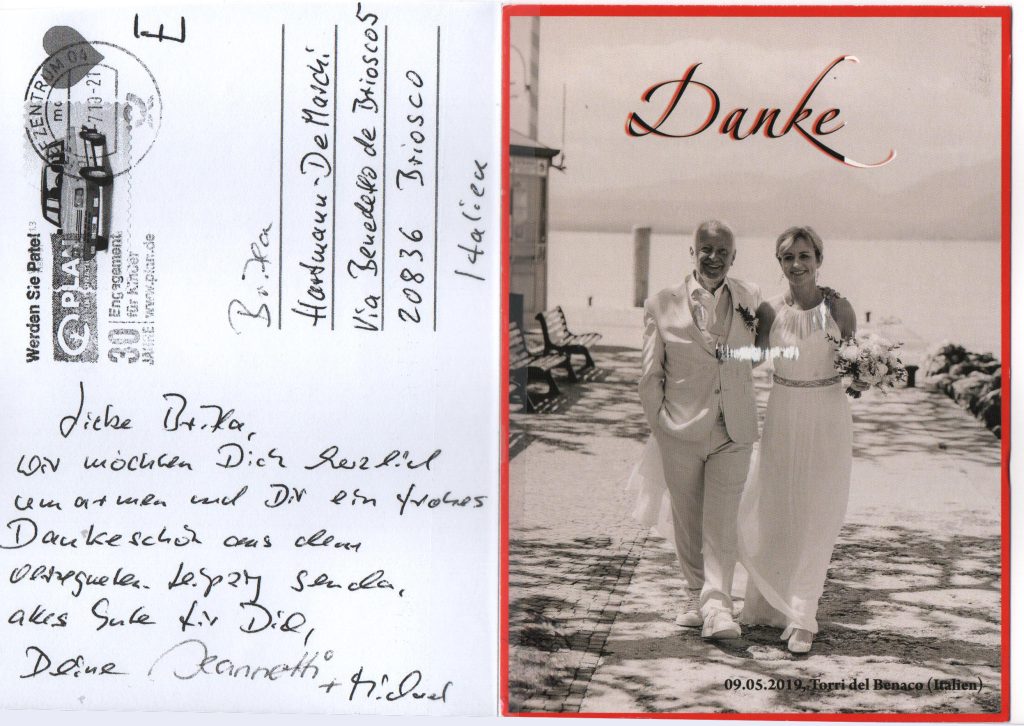 E
ZENTRUM 04
Werden Sie Pate!
PLAN
30 JAHRE
Engagement
für Kinder
www.plan.de
Britta
Hartmann-De Maschi
Via Benedetto de Briosco 5
20836 Briosco
Italien
Liebe Britta,
wir möchten Dich herzlich
umarmen und Dir ein frohes
Dankeschön aus dem
verregneten Leipzig senden,
alles Gute für Dich,
Deine Jeannette
+ Michael
Danke
09.05.2019, Torri del Benaco (Italien)